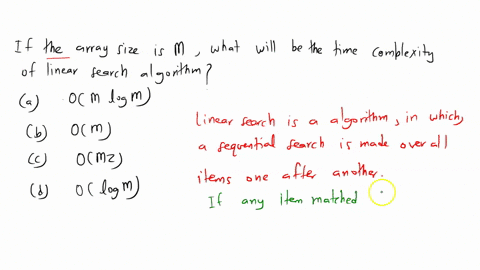 If the array size is M, what will be the time complexity
of linear search algorithm?
(a) O(M log M)
(b) O(M)
(c) O(M2)
(d) O(log M)
linear search is a algorithm, in which,
a sequential search is made over all
items one after another.
If any Item matched